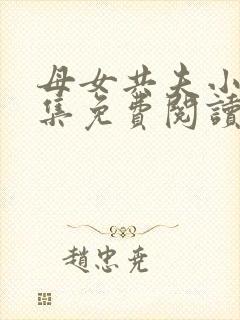 母女共夫小
集免費閱讀
趙忠堯